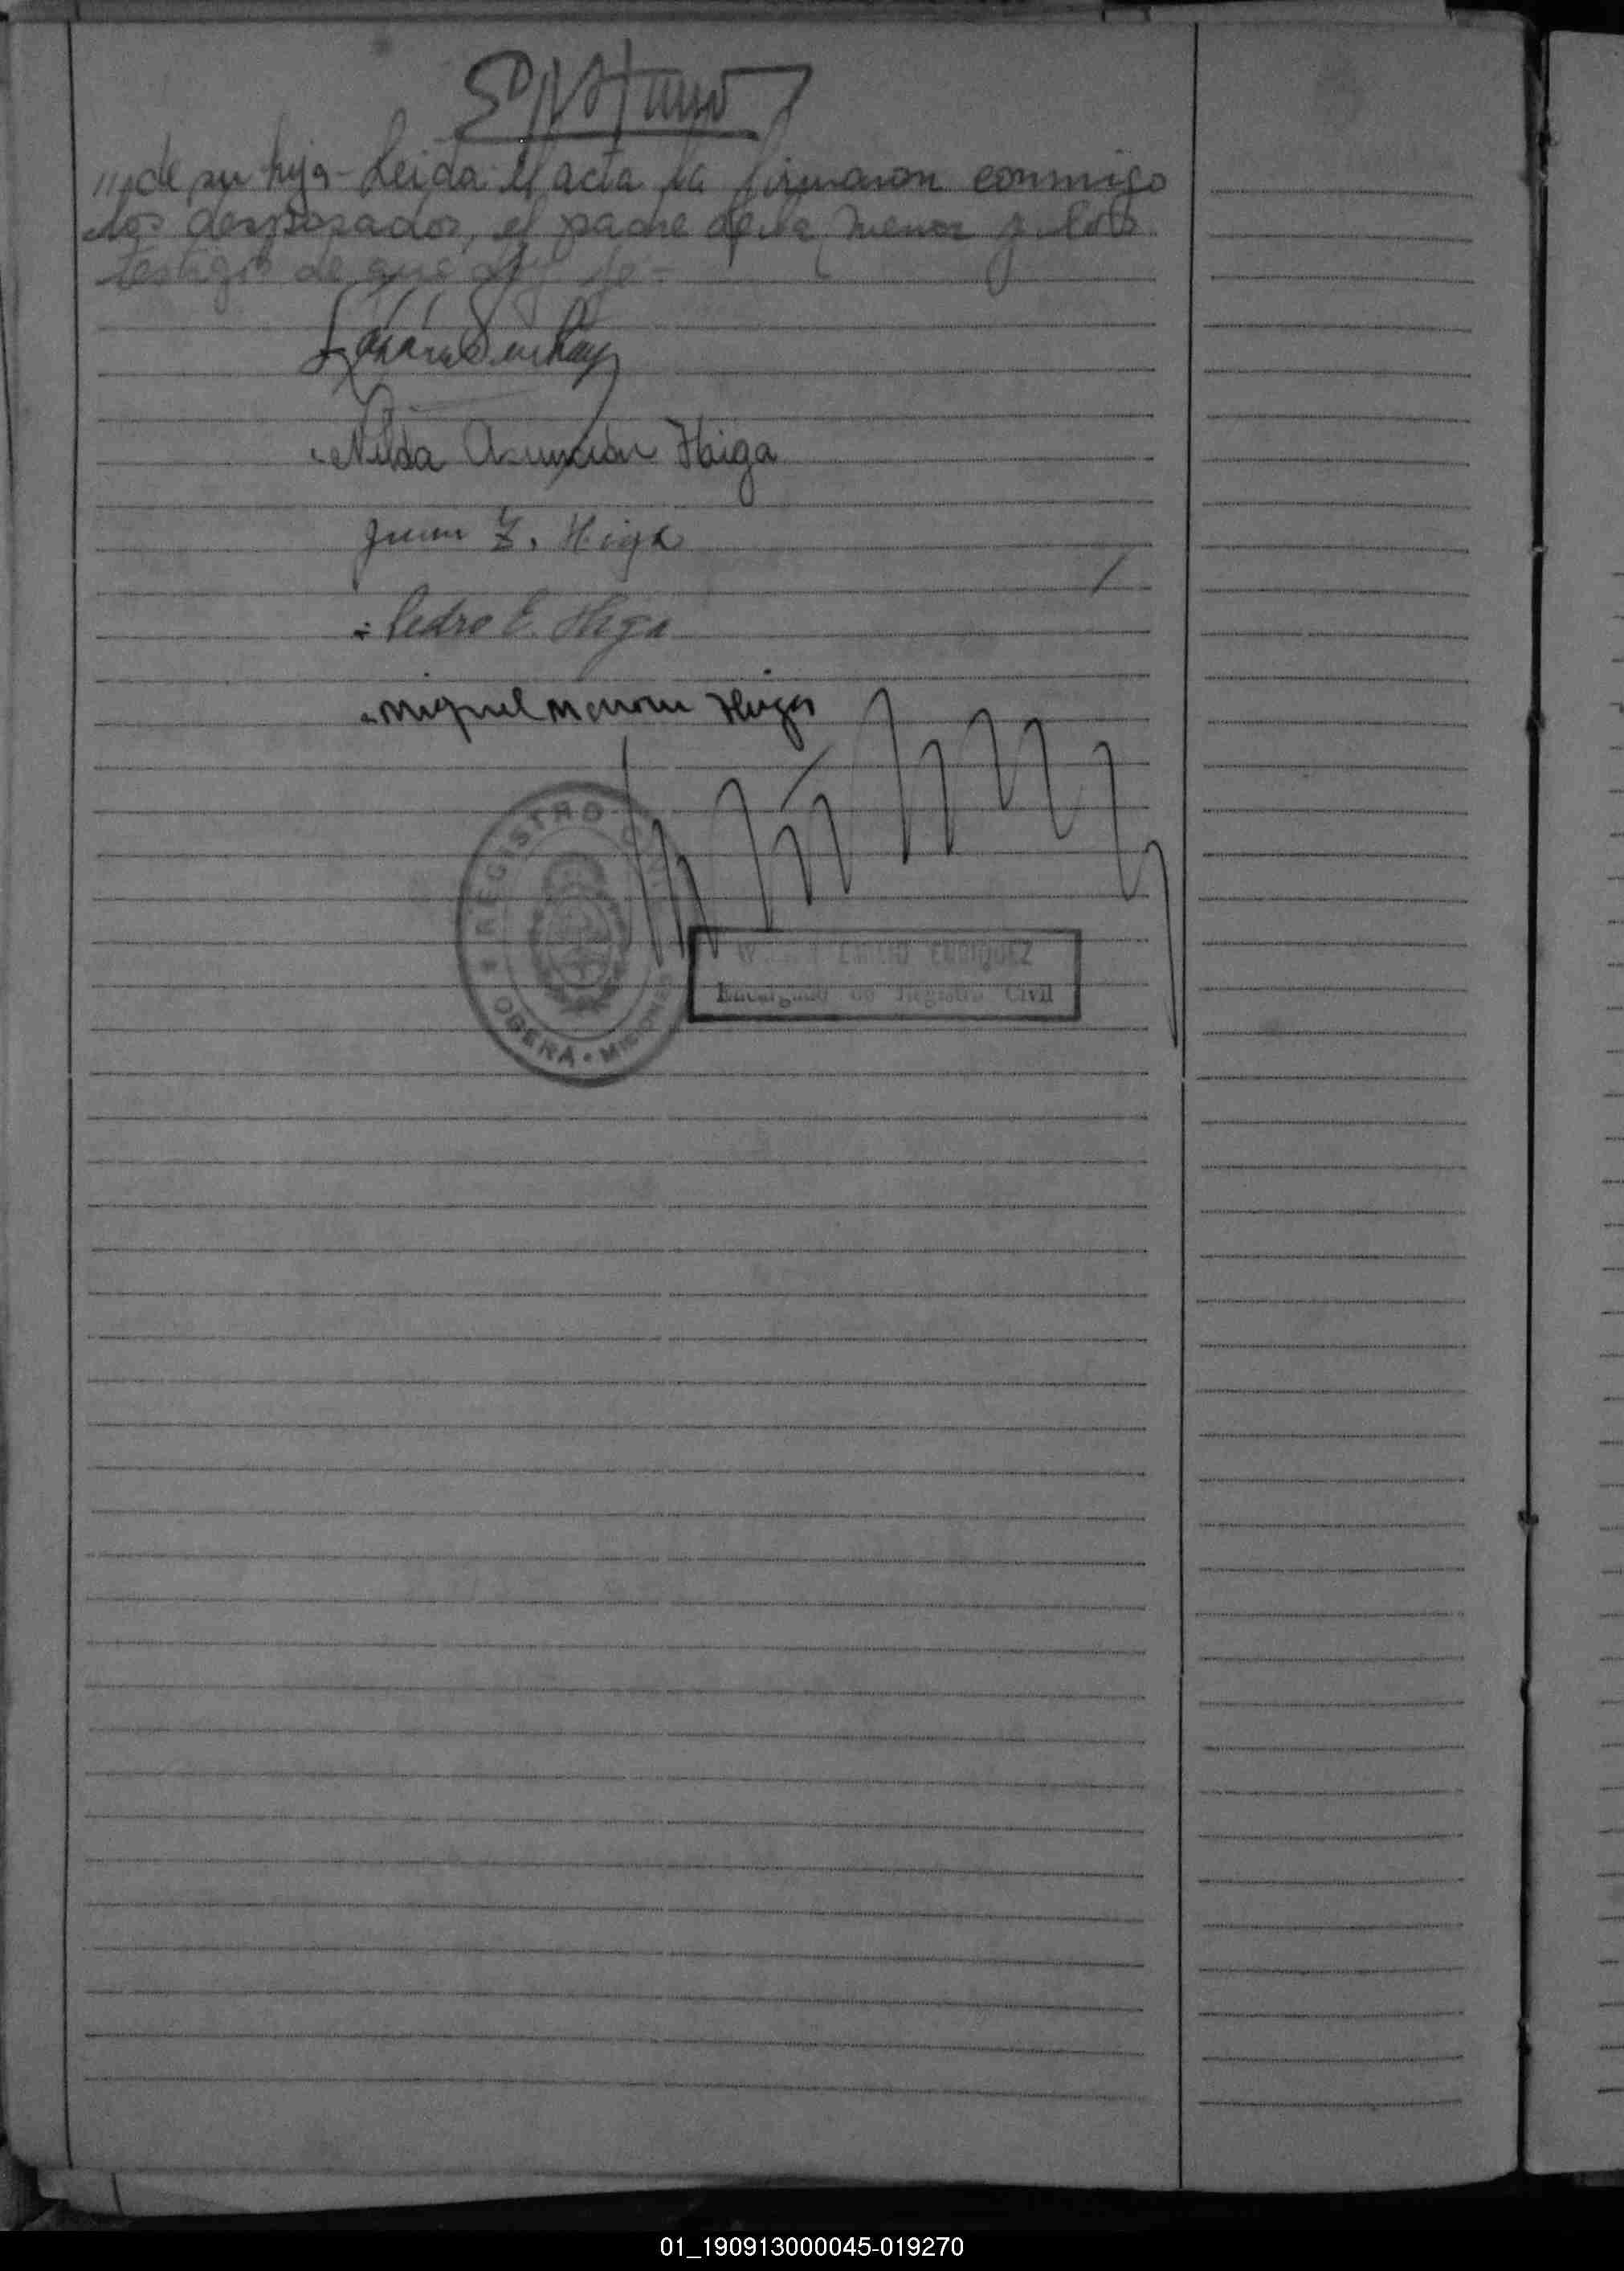 de su hija - Leida el acta la firmaron conmigo
los desposados, el padre de la menor y los
testigos de que doy fe -
Nilda Asunción Higa
Juan Z. Higa
Pedro E. Higa
Miguel Higa
REGISTRO CIVIL
OBERÁ · MISIONES
ENRIQUEZ
Encargado de Registro Civil
01_190913000045-019270